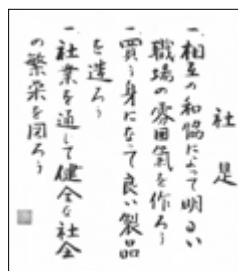 社是
一、相互の和協によって明るい
職場の雰囲氣を作ろう
一、買う身になって良い製品
を造ろう
一、社業を通して健全な社会
の繁栄を図ろう